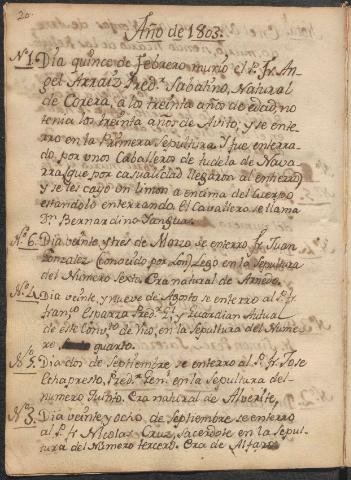 20.
Año de 1803.
Nº 1. Dia quince de Febrero murio el P. Fr. An-
gel Arraiz Predr. Sabatino, Natural
de Corera, a los treinta años de edad, no
tenia los treinta años de Avito; y se ente-
rro en la Primera Sepultura. Y fue enterra-
do por unos Caballeros de tudela de Nava-
rra (que por casualidad llegaron al entierro)
y se les cayo un limon a encima del Cuerpo
estandolo enterrando. El Cavallero se llama
Dn. Bernardino
Nº 6. Dia veinte, y tres de Marzo se enterro Fr. Juan
Gonzalez (conocido por Lego en la Sepultura
del Numero Sexto. Era natural de Arnedo.
Nº 4. Dia veinte, y nueve de Agosto se enterro al P. Fr.
Franco. Esparza Predr. Gl. y Guardian Autual
de este Convto. de Vico, en la Sepultura del Nume-
ro quarto.
Nº 5. Dia dos de Septiembre se enterro al P. Fr. Jose
Echapresto, Predr. Genl. en la Sepultura del
numero Quinto. Era natural de Alverite,
Nº 3. Dia veinte y ocho de Septiembre se enterro
al P. Fr. Nicolas Cruz, Sacerdote en la Sepul-
tura del Numero tercero. Era de Alfaro